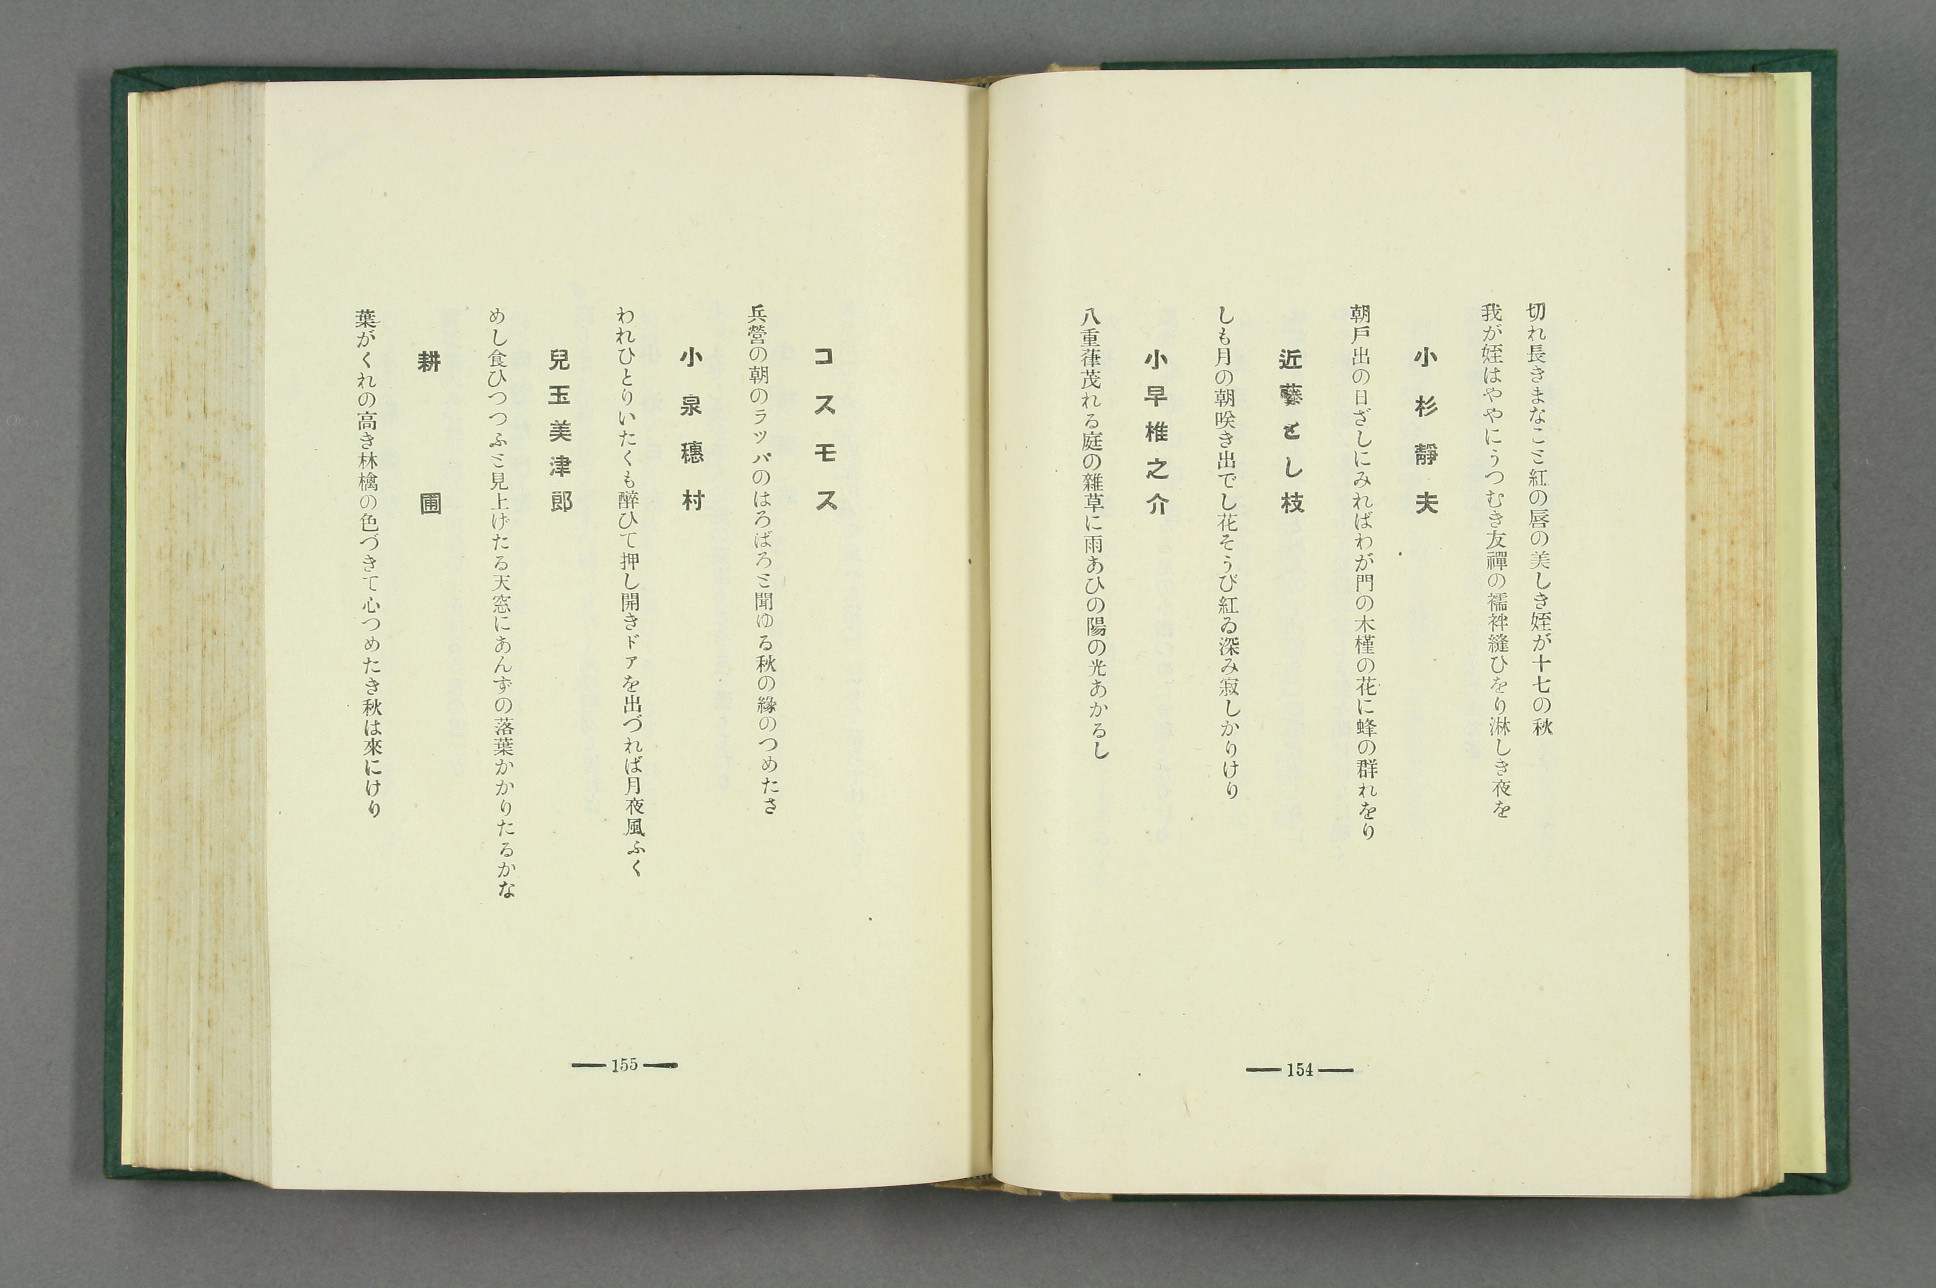 切れ長きまなこと紅の唇の美しき姪が十七の秋
我が姪はややにうつむき友禪の襦袢縫ひをり淋しき夜を
小杉靜夫
朝戸出の日ざしにみればわが門の木槿の花に蜂の群れをり
近藤とし枝
しも月の朝咲き出でし花そうび紅ゐ深み寂しかりけり
小早椎之介
八重葎茂れる庭の雜草に雨あひの陽の光あかるし
154
コスモス
兵營の朝のラッパのはろばろと聞ゆる秋の緣のつめたさ
小泉穗村
われひとりいたくも醉ひて押し開きドアを出づれば月夜風ふく
兒玉美津郎
めし食ひつつふと見上げたる天窓にあんずの落葉かかりたるかな
耕圃
葉がくれの高き林檎の色づきて心つめたき秋は來にけり
155